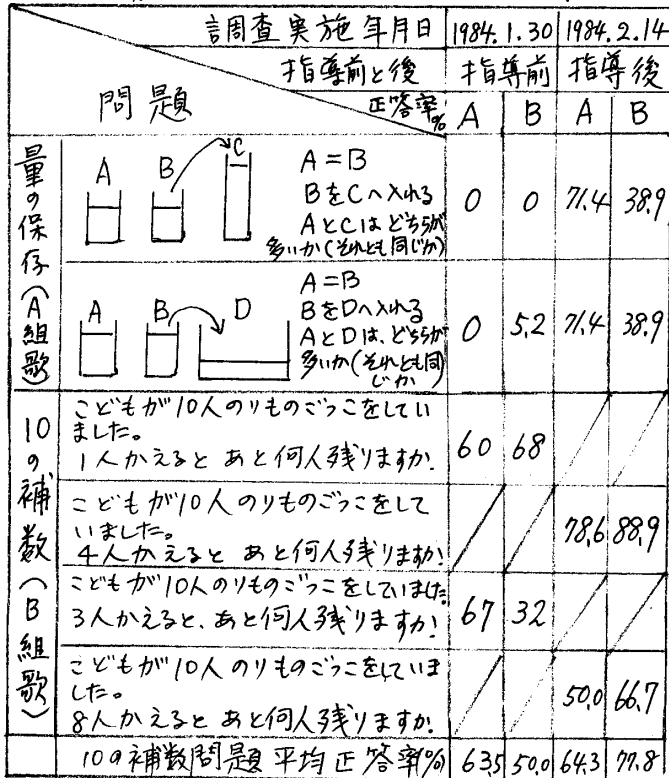 調査実施年月日 1984.1.30 1984.2.14
指導前と後 指導前 指導後
問題 正答率% A B A B
量の保存(A組歌)
A B C
A=B
BをCへ入れる
AとCはどちらが
多いか(それとも同じか)
0 0 71.4 38.9
A B D
A=B
BをDへ入れる
AとDは、どちらが
多いか(それとも同
じか)
0 5.2 71.4 38.9
10の補数(B組歌)
こどもが10人のりものごっこをしてい
ました。
1人かえると あと何人残りますか!
60 68
こどもが10人のりものごっこをして
いました。
4人かえると あと何人残りますか!
78.6 88.9
こどもが10人のりものごっこをしていました。
3人かえると、あと何人残りますか!
67 32
こどもが10人のりものごっこをしていま
した。
8人かえると あと何人残りますか!
50.0 66.7
10の補数問題 平均正答率(%) 63.5 50.0 64.3 77.8